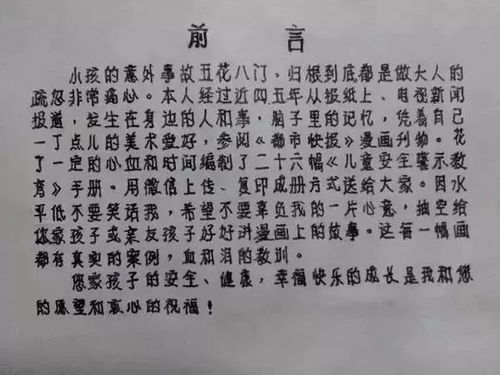 前言
小孩的意外事故五花八门，归根到底都是做大人的
疏忽非常痛心。本人经过近四五年从报纸上、电视新闻
报道，发生在身边的人和事，脑子里的记忆，凭着自己
一丁点儿的美术爱好，参阅《都市快报》漫画刊物。花
了一定的心血和时间编制了二十六幅《儿童安全警示教
育》手册。用微信上传、复印成册方式送给大家。因水
平低不要笑话我，希望不要辜负我的一片心意，抽空给
您家孩子或亲友孩子好好讲漫画上的故事。这每一幅画
都有真实的案例，血和泪的教训。
您家孩子的安全、健康，幸福快乐的成长是我和您
的愿望和衷心的祝福！